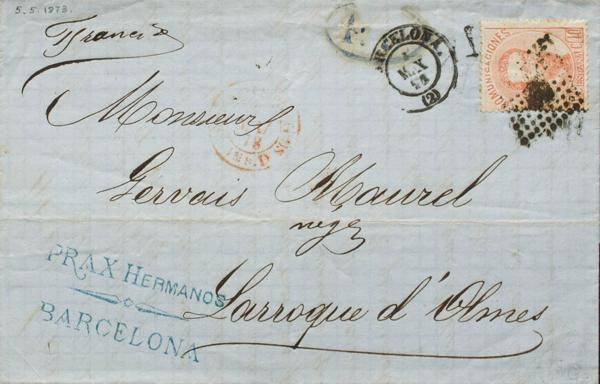 5.5.1873.
Francia
BARCELONA.
(2)
COMUNICACIONES
Monsieur
Gervais Maurel
negt
Larroque d'Olmes
PRAX HERMANOS
BARCELONA